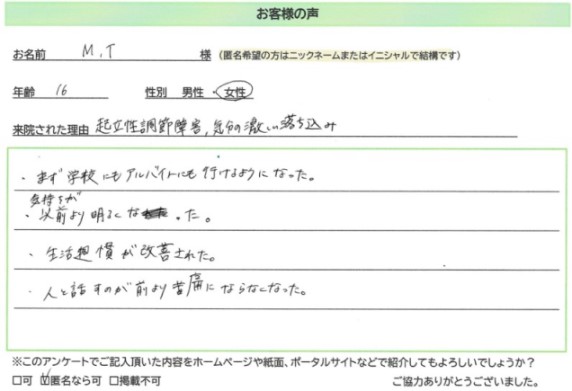 お客様の声
お名前 M.T 様 (匿名希望の方はニックネームまたはイニシャルで結構です)
年齢 16 性別 男性・女性
来院された理由 起立性調節障害,気分の激しい落ち込み
・まず学校にもアルバイトにも行けるようになった。
気持ちが
・以前より明るくなった。
・生活習慣が改善された。
・人と話すのが前より苦痛にならなくなった。
※このアンケートでご記入頂いた内容をホームページや紙面、ポータルサイトなどで紹介してもよろしいでしょうか?
□可 ☑匿名なら可 □掲載不可 ご協力ありがとうございました。